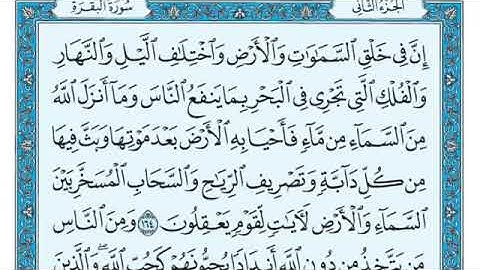 الجزء الثاني
سورة البقرة
إِنَّ فِي خَلْقِ ٱلسَّمَٰوَٰتِ وَٱلْأَرْضِ وَٱخْتِلَٰفِ ٱلَّيْلِ وَٱلنَّهَارِ
وَٱلْفُلْكِ ٱلَّتِي تَجْرِي فِي ٱلْبَحْرِ بِمَا يَنفَعُ ٱلنَّاسَ وَمَآ أَنزَلَ ٱللَّهُ
مِنَ ٱلسَّمَآءِ مِن مَّآءٍ فَأَحْيَا بِهِ ٱلْأَرْضَ بَعْدَ مَوْتِهَا وَبَثَّ فِيهَا
مِن كُلِّ دَآبَّةٍ وَتَصْرِيفِ ٱلرِّيَٰحِ وَٱلسَّحَابِ ٱلْمُسَخَّرِ بَيْنَ
ٱلسَّمَآءِ وَٱلْأَرْضِ لَأٓيَٰتٍ لِّقَوْمٍ يَعْقِلُونَ ١٦٤ وَمِنَ ٱلنَّاسِ
مَن يَتَّخِذُ مِن دُونِ ٱللَّهِ أَندَادًا يُحِبُّونَهُمْ كَحُبِّ ٱللَّهِ ۖ وَٱلَّذِينَ